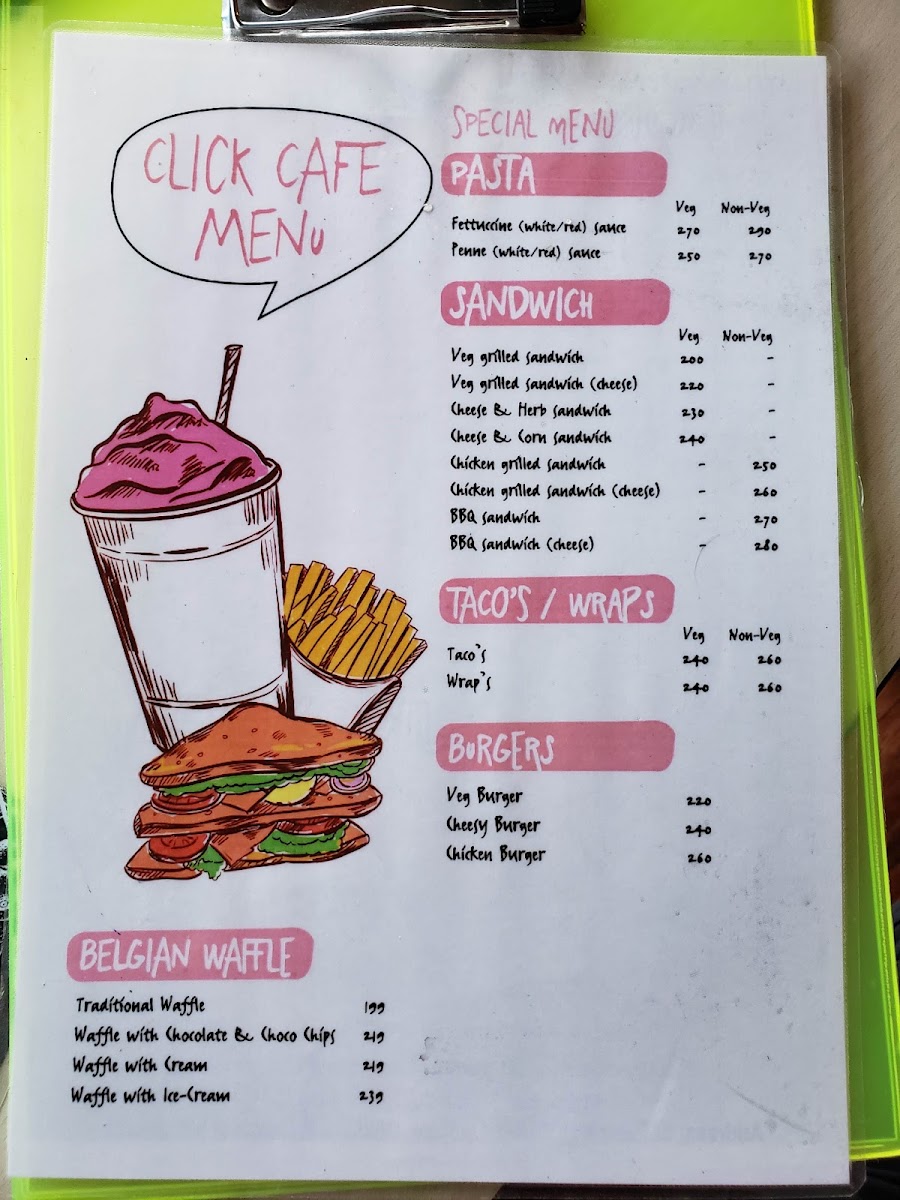 CLICK CAFE
MENU
SPECIAL MENU
PASTA
Veg Non-Veg
Fettuccine (white/red) sauce 270 290
Penne (white/red) sauce 250 270
SANDWICH
Veg Non-Veg
Veg grilled sandwich 200 -
Veg grilled sandwich (cheese) 220 -
Cheese & Herb sandwich 230 -
Cheese & Corn sandwich 240 -
Chicken grilled sandwich - 250
Chicken grilled sandwich (cheese) - 260
BBQ sandwich - 270
BBQ sandwich (cheese) - 280
TACO'S / WRAPS
Veg Non-Veg
Taco's 240 260
Wrap's 240 260
BURGERS
Veg Burger 220
Cheesy Burger 240
Chicken Burger 260
BELGIAN WAFFLE
Traditional Waffle 199
Waffle with Chocolate & Choco Chips 219
Waffle with Cream 219
Waffle with Ice-Cream 239